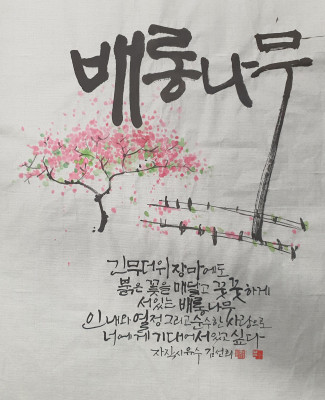 배롱나무
긴 무더위 장마에도
붉은 꽃을 매달고 꿋꿋하게
서있는 배롱나무
인내와 열정 그리고 순수한 사랑으로
너에게 기대어 서 있고 싶다